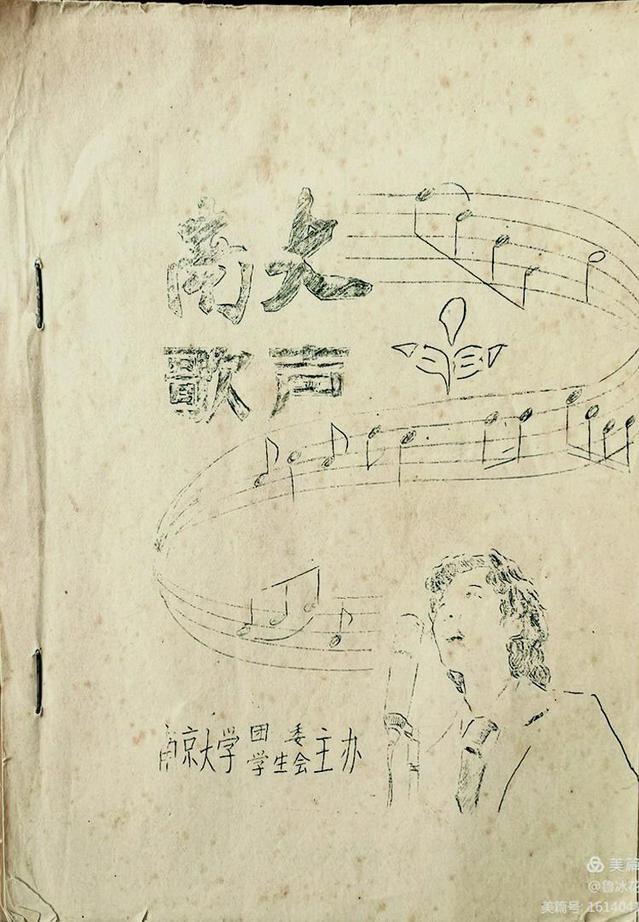 南大
歌声
南京大学 团委 学生会 主办
美篇
@鲁冰花
美篇号: 161404